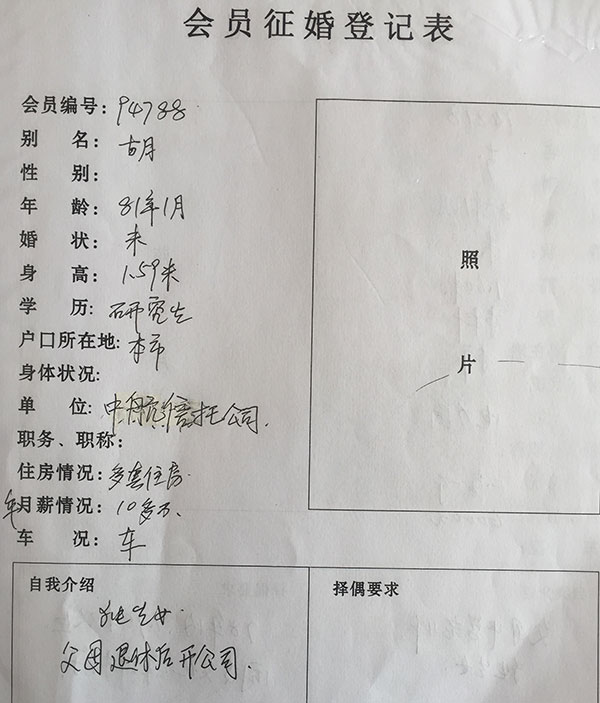 会员征婚登记表
会员编号：94788
别 名：胡
性 别：
年 龄：81年1月
婚 状：未
身 高：1.59米
学 历：研究生
户口所在地：本市
身体状况：
单 位：中航信托公司.
职务、职称：
住房情况：多套住房.
年月薪情况：10多万.
车 况：车
照
片
自我介绍
独生女
父母退休后开公司.
择偶要求